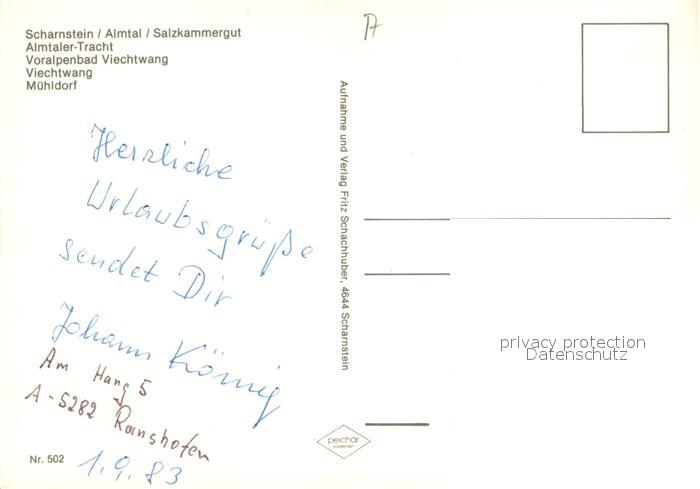 Scharnstein / Almtal / Salzkammergut
Almtaler-Tracht
Voralpenbad Viechtwang
Viechtwang
Mühldorf
Herzliche
Urlaubsgrüße
sendet Dir
Johann König
Am Hang 5
A-5282 Ranshofen
1.9.83
Nr. 502
Aufnahme und Verlag Fritz Schachhuber, 4644 Scharnstein
peichär
privacy protection
Datenschutz